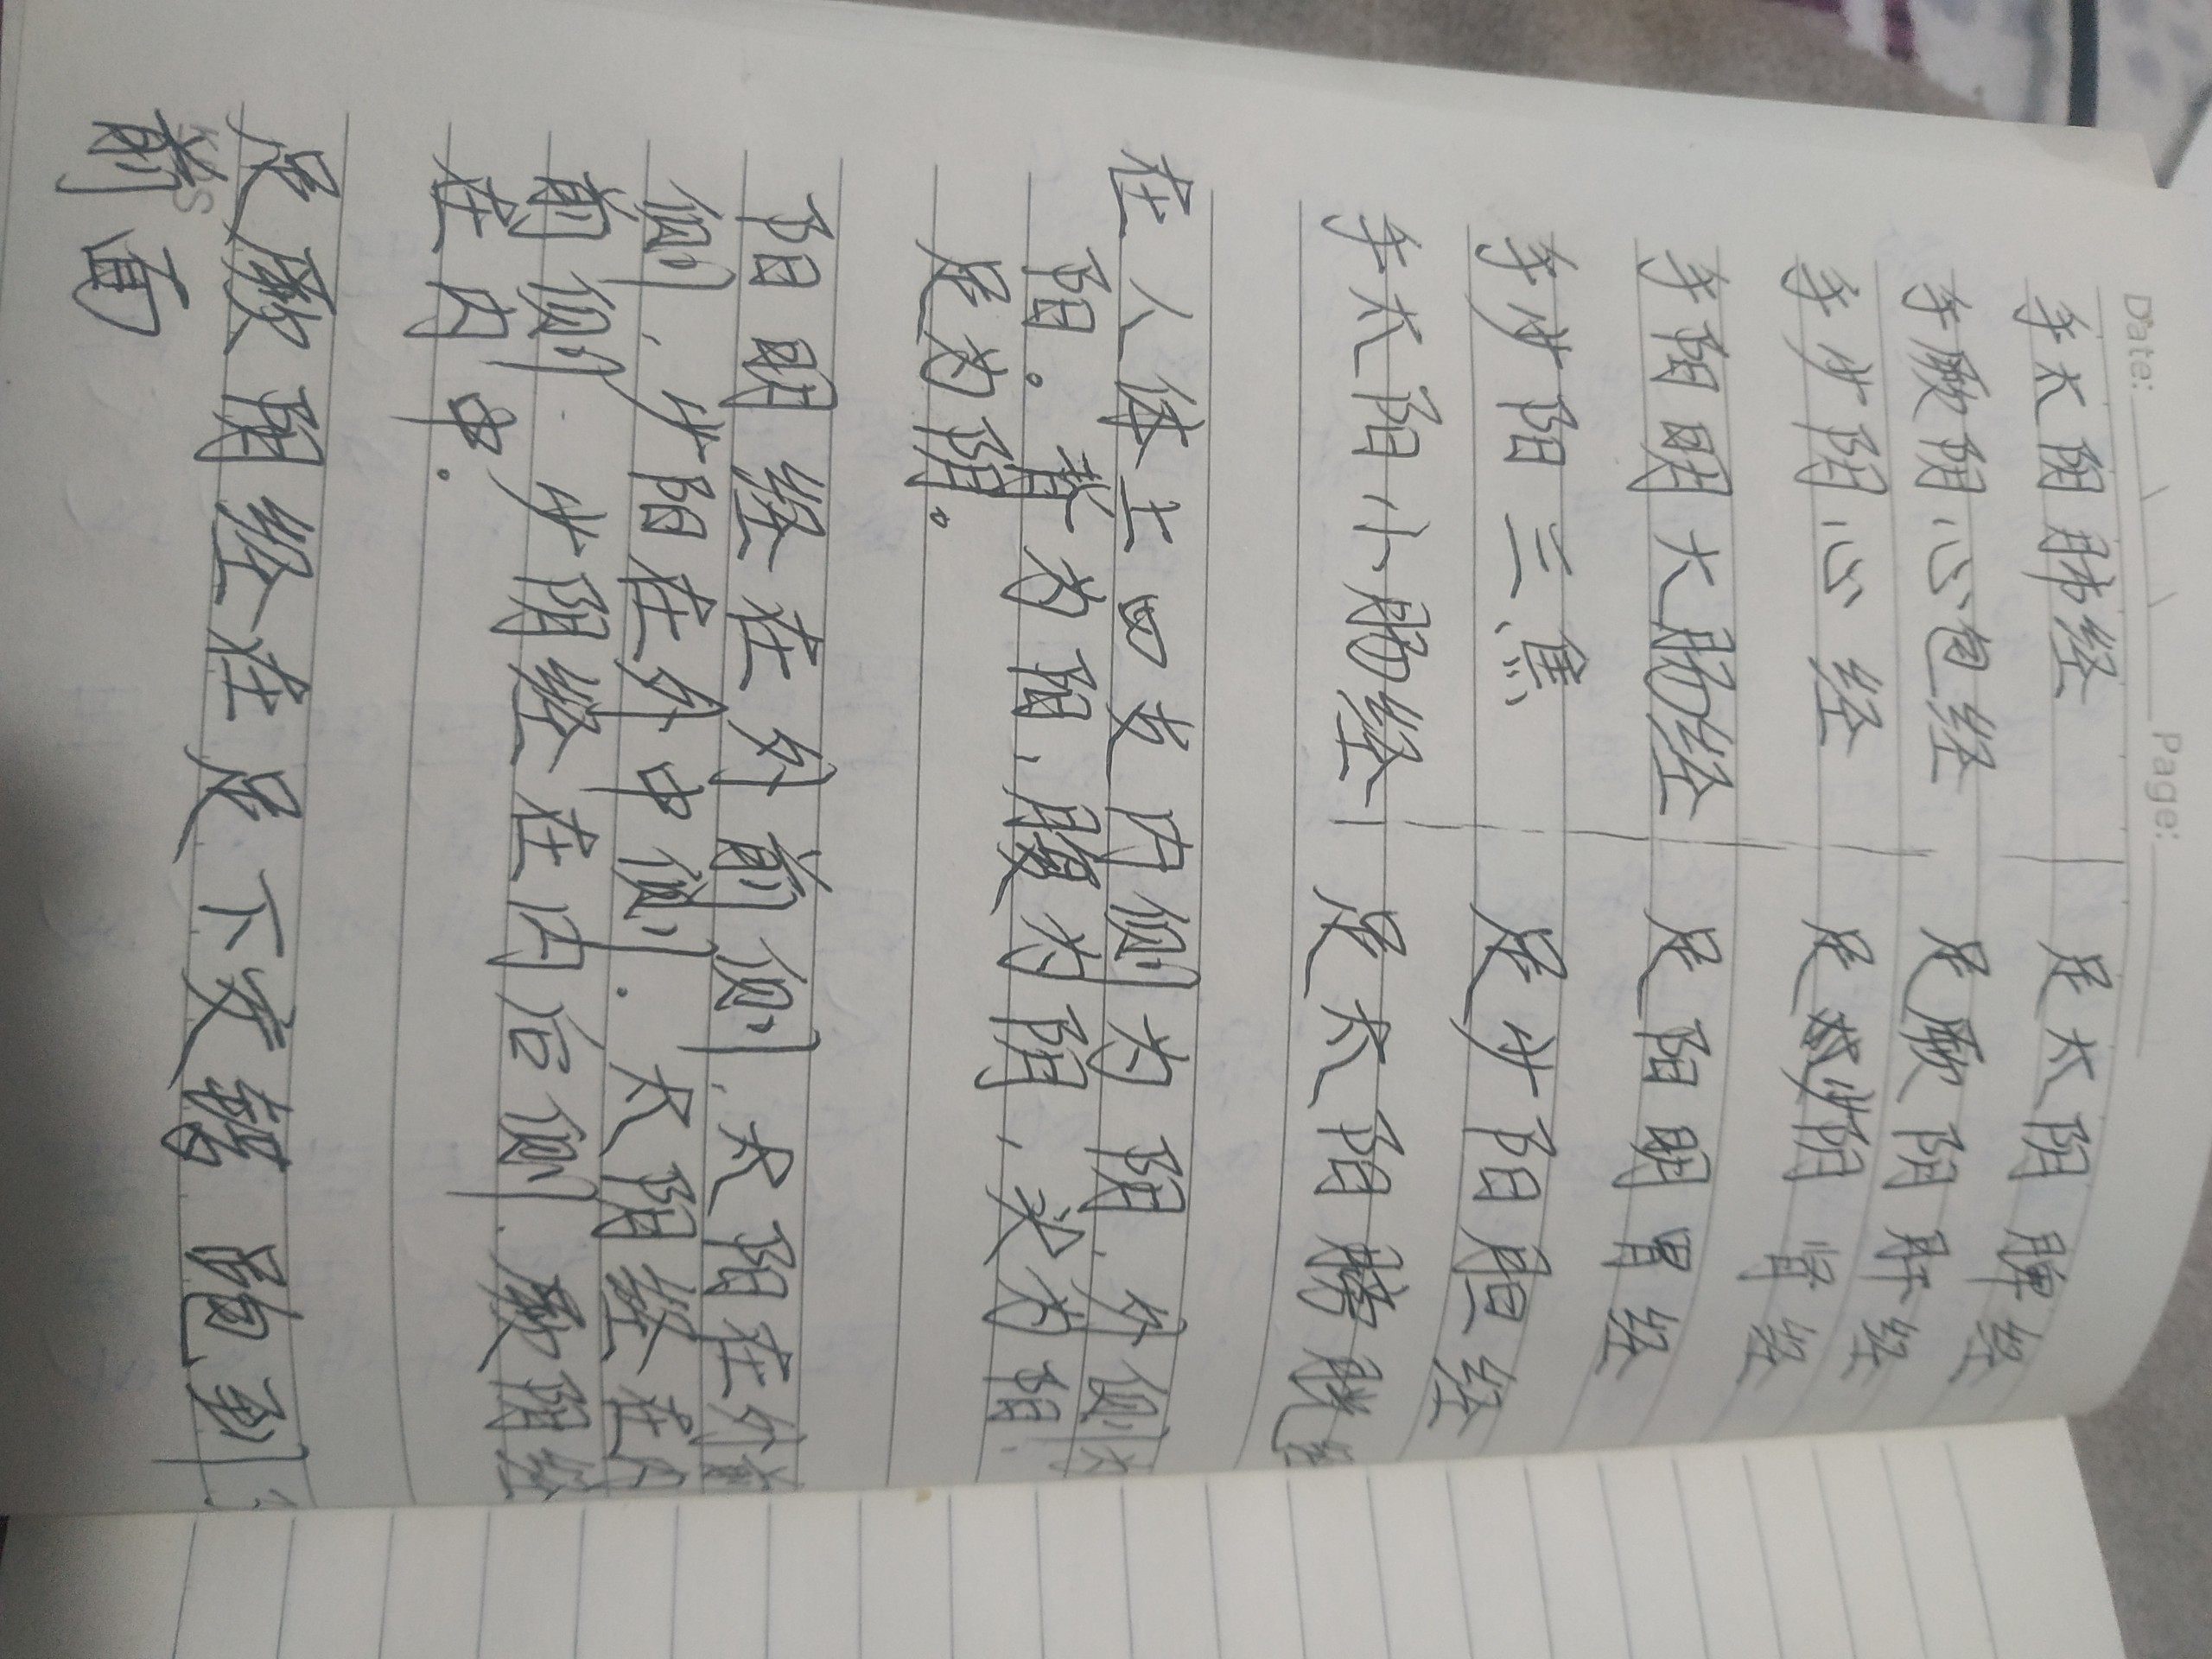 Date: Page:
手太阴肺经 足太阴脾经
手厥阴心包经 足厥阴肝经
手少阴心经 足少阴肾经
手阳明大肠经 足阳明胃经
手少阳三焦 足少阳胆经
手太阳小肠经 足太阳膀胱经
在人体上四支内侧为阴.外侧为
阳。背为阳,腹为阴,头为阳.
足为阴。
阳明经在外前侧.太阳在外
侧.少阳在外中侧.太阴经在内
前侧.少阴经在内后侧.厥阴经
在内中.
足厥阴经在足下交错 跑到
前面